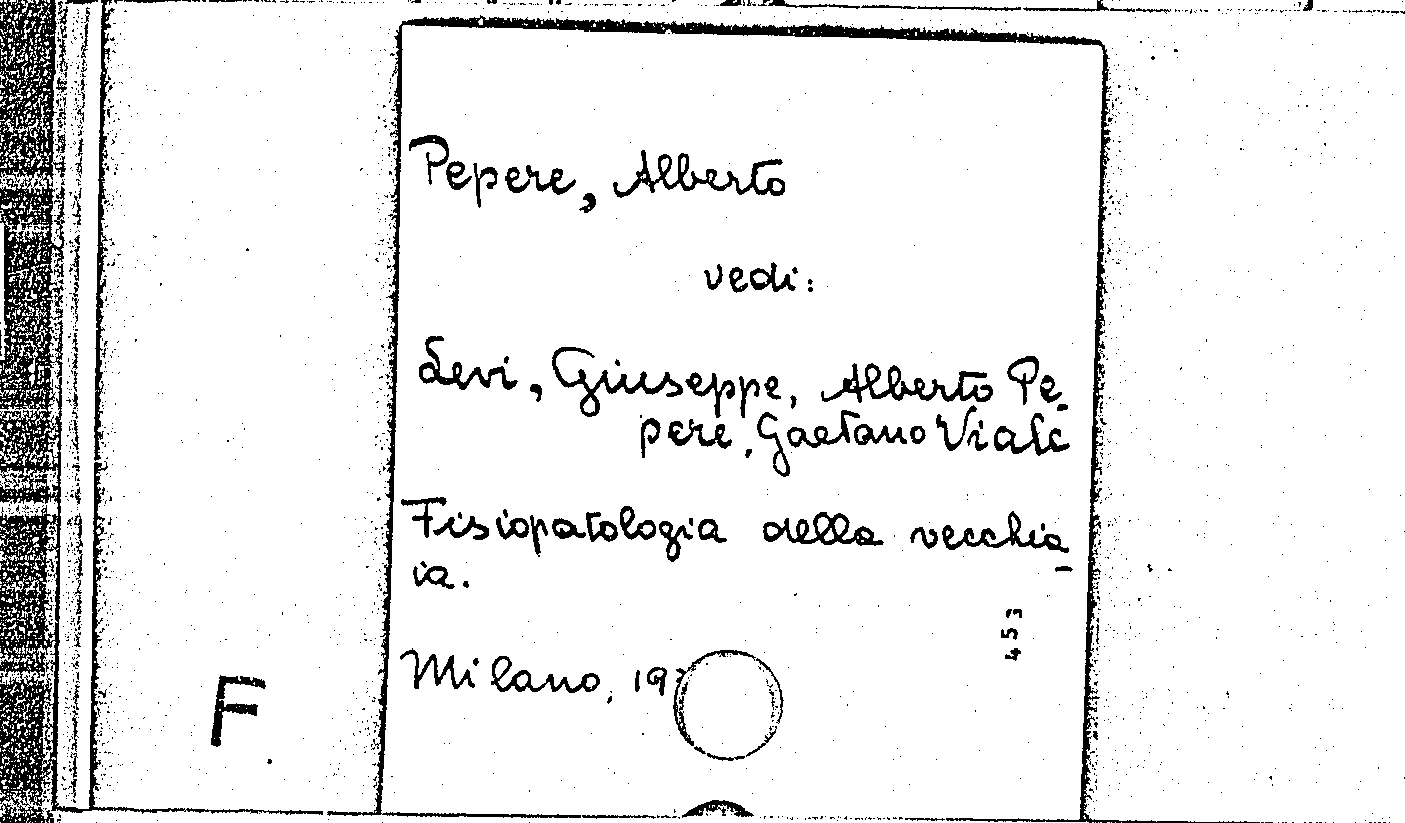 Pepere, Alberto
vedi:
Levi, Giuseppe, Alberto Pe-
pere, Gaetano Viale
Fisiopatologia della vecchia-
ia.
453
Milano,
F